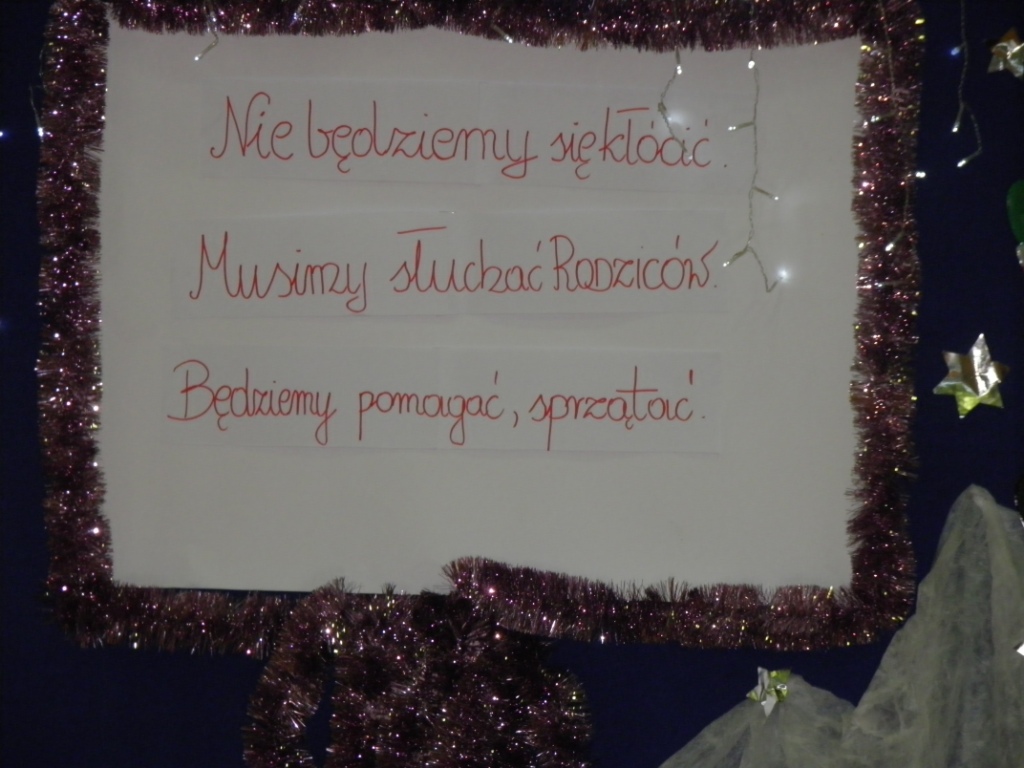 Nie będziemy siękłócić.
Musimy słuchać Rodziców.
Będziemy pomagać, sprzątać.